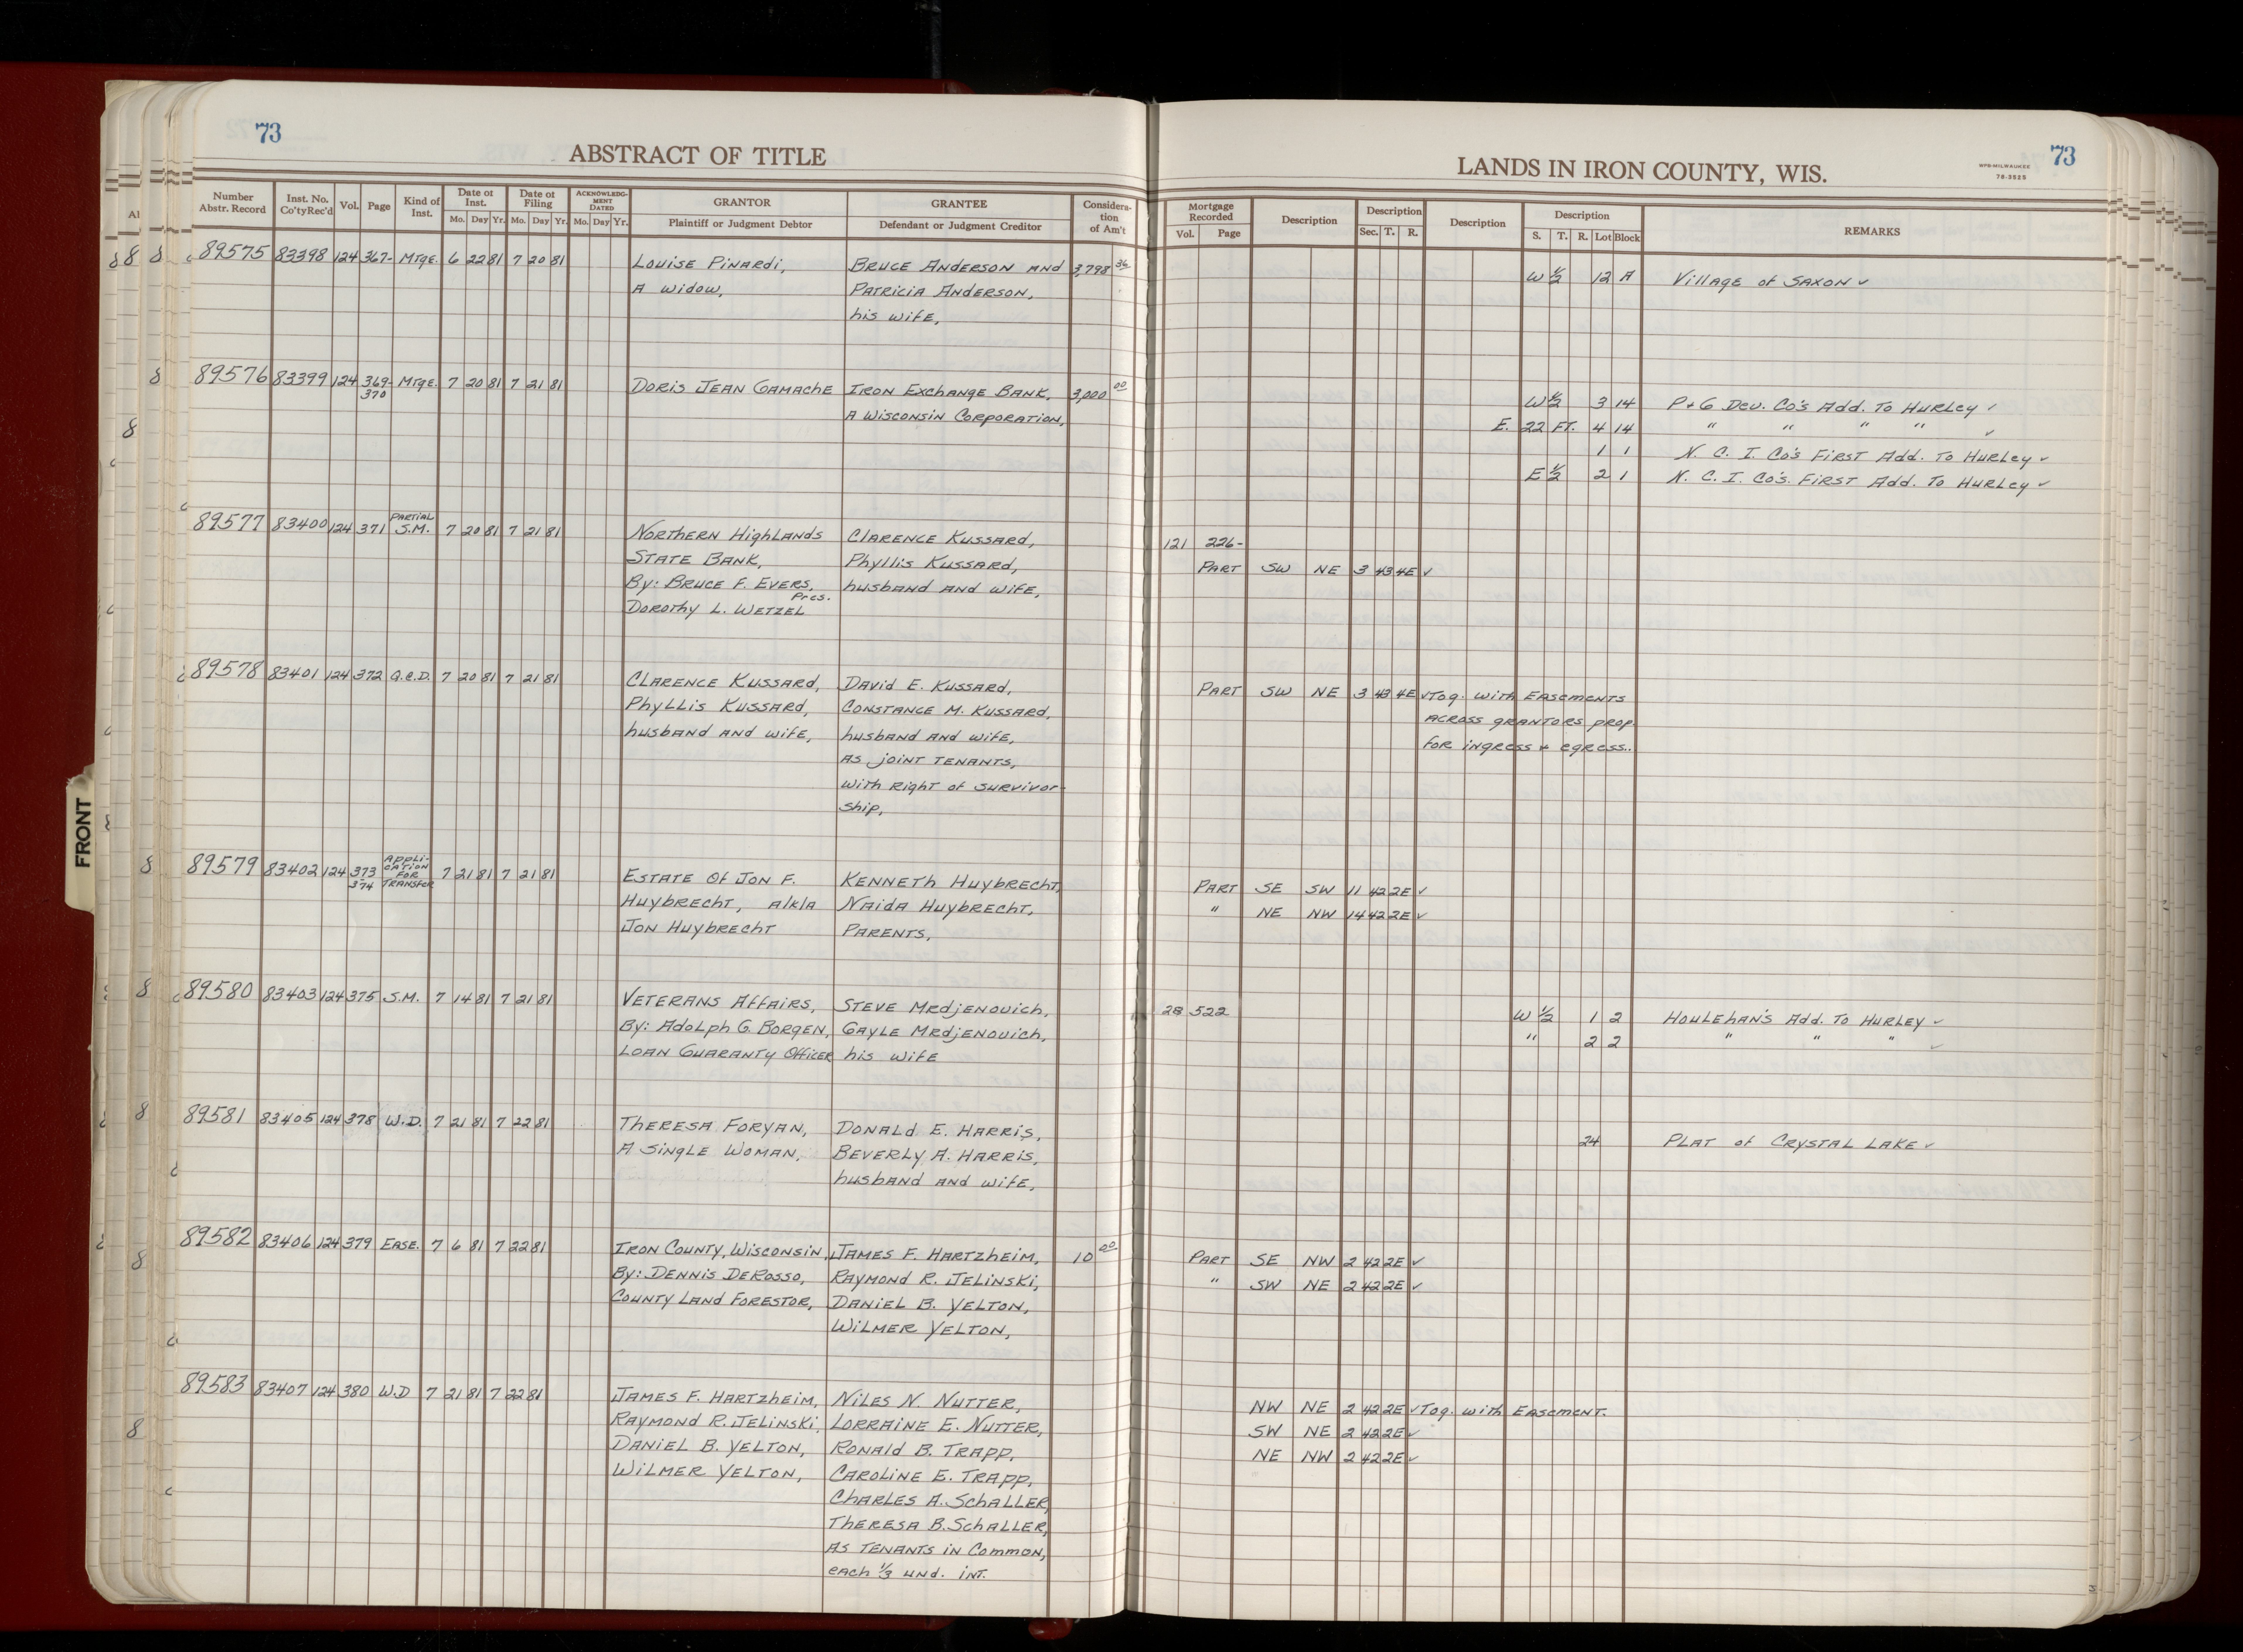 73
ABSTRACT OF TITLE
Number Abstr. Record Inst. No. Co'tyRec'd Vol. Page Kind of Inst. Date of Inst. Mo. Day Yr. Date of Filing Mo. Day Yr. ACKNOWLEDGMENT DATED Mo. Day Yr. GRANTOR Plaintiff or Judgment Debtor GRANTEE Defendant or Judgment Creditor Consideration of Am't
73
LANDS IN IRON COUNTY, WIS.
WPB-MILWAUKEE
78-3525
Mortgage Recorded Vol. Page Description Description Sec. T. R. Description Description S. T. R. Lot Block REMARKS
89575 83398 124 367- Mtge. 6 22 81 7 20 81 Louise Pinardi, Bruce Anderson and 3,798 36
A widow, Patricia Anderson, W ½ 12 A Village of Saxon ✓
his wife,
89576 83399 124 369- Mtge. 7 20 81 7 21 81 Doris Jean Gamache Iron Exchange Bank, 3,000 00
370 A Wisconsin Corporation, W ½ 3 14 P+G Dev. Co's Add. To Hurley ✓
E. 22 FT. 4 14 " " " " ✓
1 1 N. C. I. Co's First Add. To Hurley ✓
E ½ 2 1 N. C. I. Co's. First Add. To Hurley ✓
89577 83400 124 371 Partial S.M. 7 20 81 7 21 81 Northern Highlands Clarence Kussard, 121 226-
State Bank, Phyllis Kussard, Part SW NE 3 43 4E ✓
By: Bruce F. Evers, Pres. husband and wife,
Dorothy L. Wetzel
89578 83401 124 372 Q.C.D. 7 20 81 7 21 81 Clarence Kussard, David E. Kussard, Part SW NE 3 43 4E ✓ Tog. with Easements
Phyllis Kussard, Constance M. Kussard, across grantors prop.
husband and wife, husband and wife, for ingress + egress.
as joint tenants,
with right of survivor-
ship,
89579 83402 124 373 Application for Transfer 7 21 81 7 21 81 Estate of Jon F. Kenneth Huybrecht, Part SE SW 11 42 2E ✓
374 Huybrecht, a/k/a Naida Huybrecht, " NE NW 14 42 2E ✓
Jon Huybrecht Parents,
89580 83403 124 375 S.M. 7 14 81 7 21 81 Veterans Affairs, Steve Mrdjenovich, 28 522 W ½ 1 2 Houlehan's Add. To Hurley ✓
By: Adolph G. Borgen, Gayle Mrdjenovich, " 2 2 " " " ✓
Loan Guaranty Officer his wife
89581 83405 124 378 W.D. 7 21 81 7 22 81 Theresa Foryan, Donald E. Harris, 24 Plat of Crystal Lake ✓
A single woman, Beverly A. Harris,
husband and wife,
89582 83406 124 379 Ease. 7 6 81 7 22 81 Iron County, Wisconsin, James F. Hartzheim, 10 00 Part SE NW 2 42 2E ✓
By: Dennis DeRosso, Raymond R. Jelinski, " SW NE 2 42 2E ✓
County Land Forestor, Daniel B. Yelton,
Wilmer Yelton,
89583 83407 124 380 W.D 7 21 81 7 22 81 James F. Hartzheim, Niles N. Nutter, NW NE 2 42 2E ✓ Tog. with Easement.
Raymond R. Jelinski, Lorraine E. Nutter, SW NE 2 42 2E ✓
Daniel B. Yelton, Ronald B. Trapp, NE NW 2 42 2E ✓
Wilmer Yelton, Caroline E. Trapp,
Charles A. Schaller,
Theresa B. Schaller,
as tenants in common,
each ⅓ und. int.
FRONT